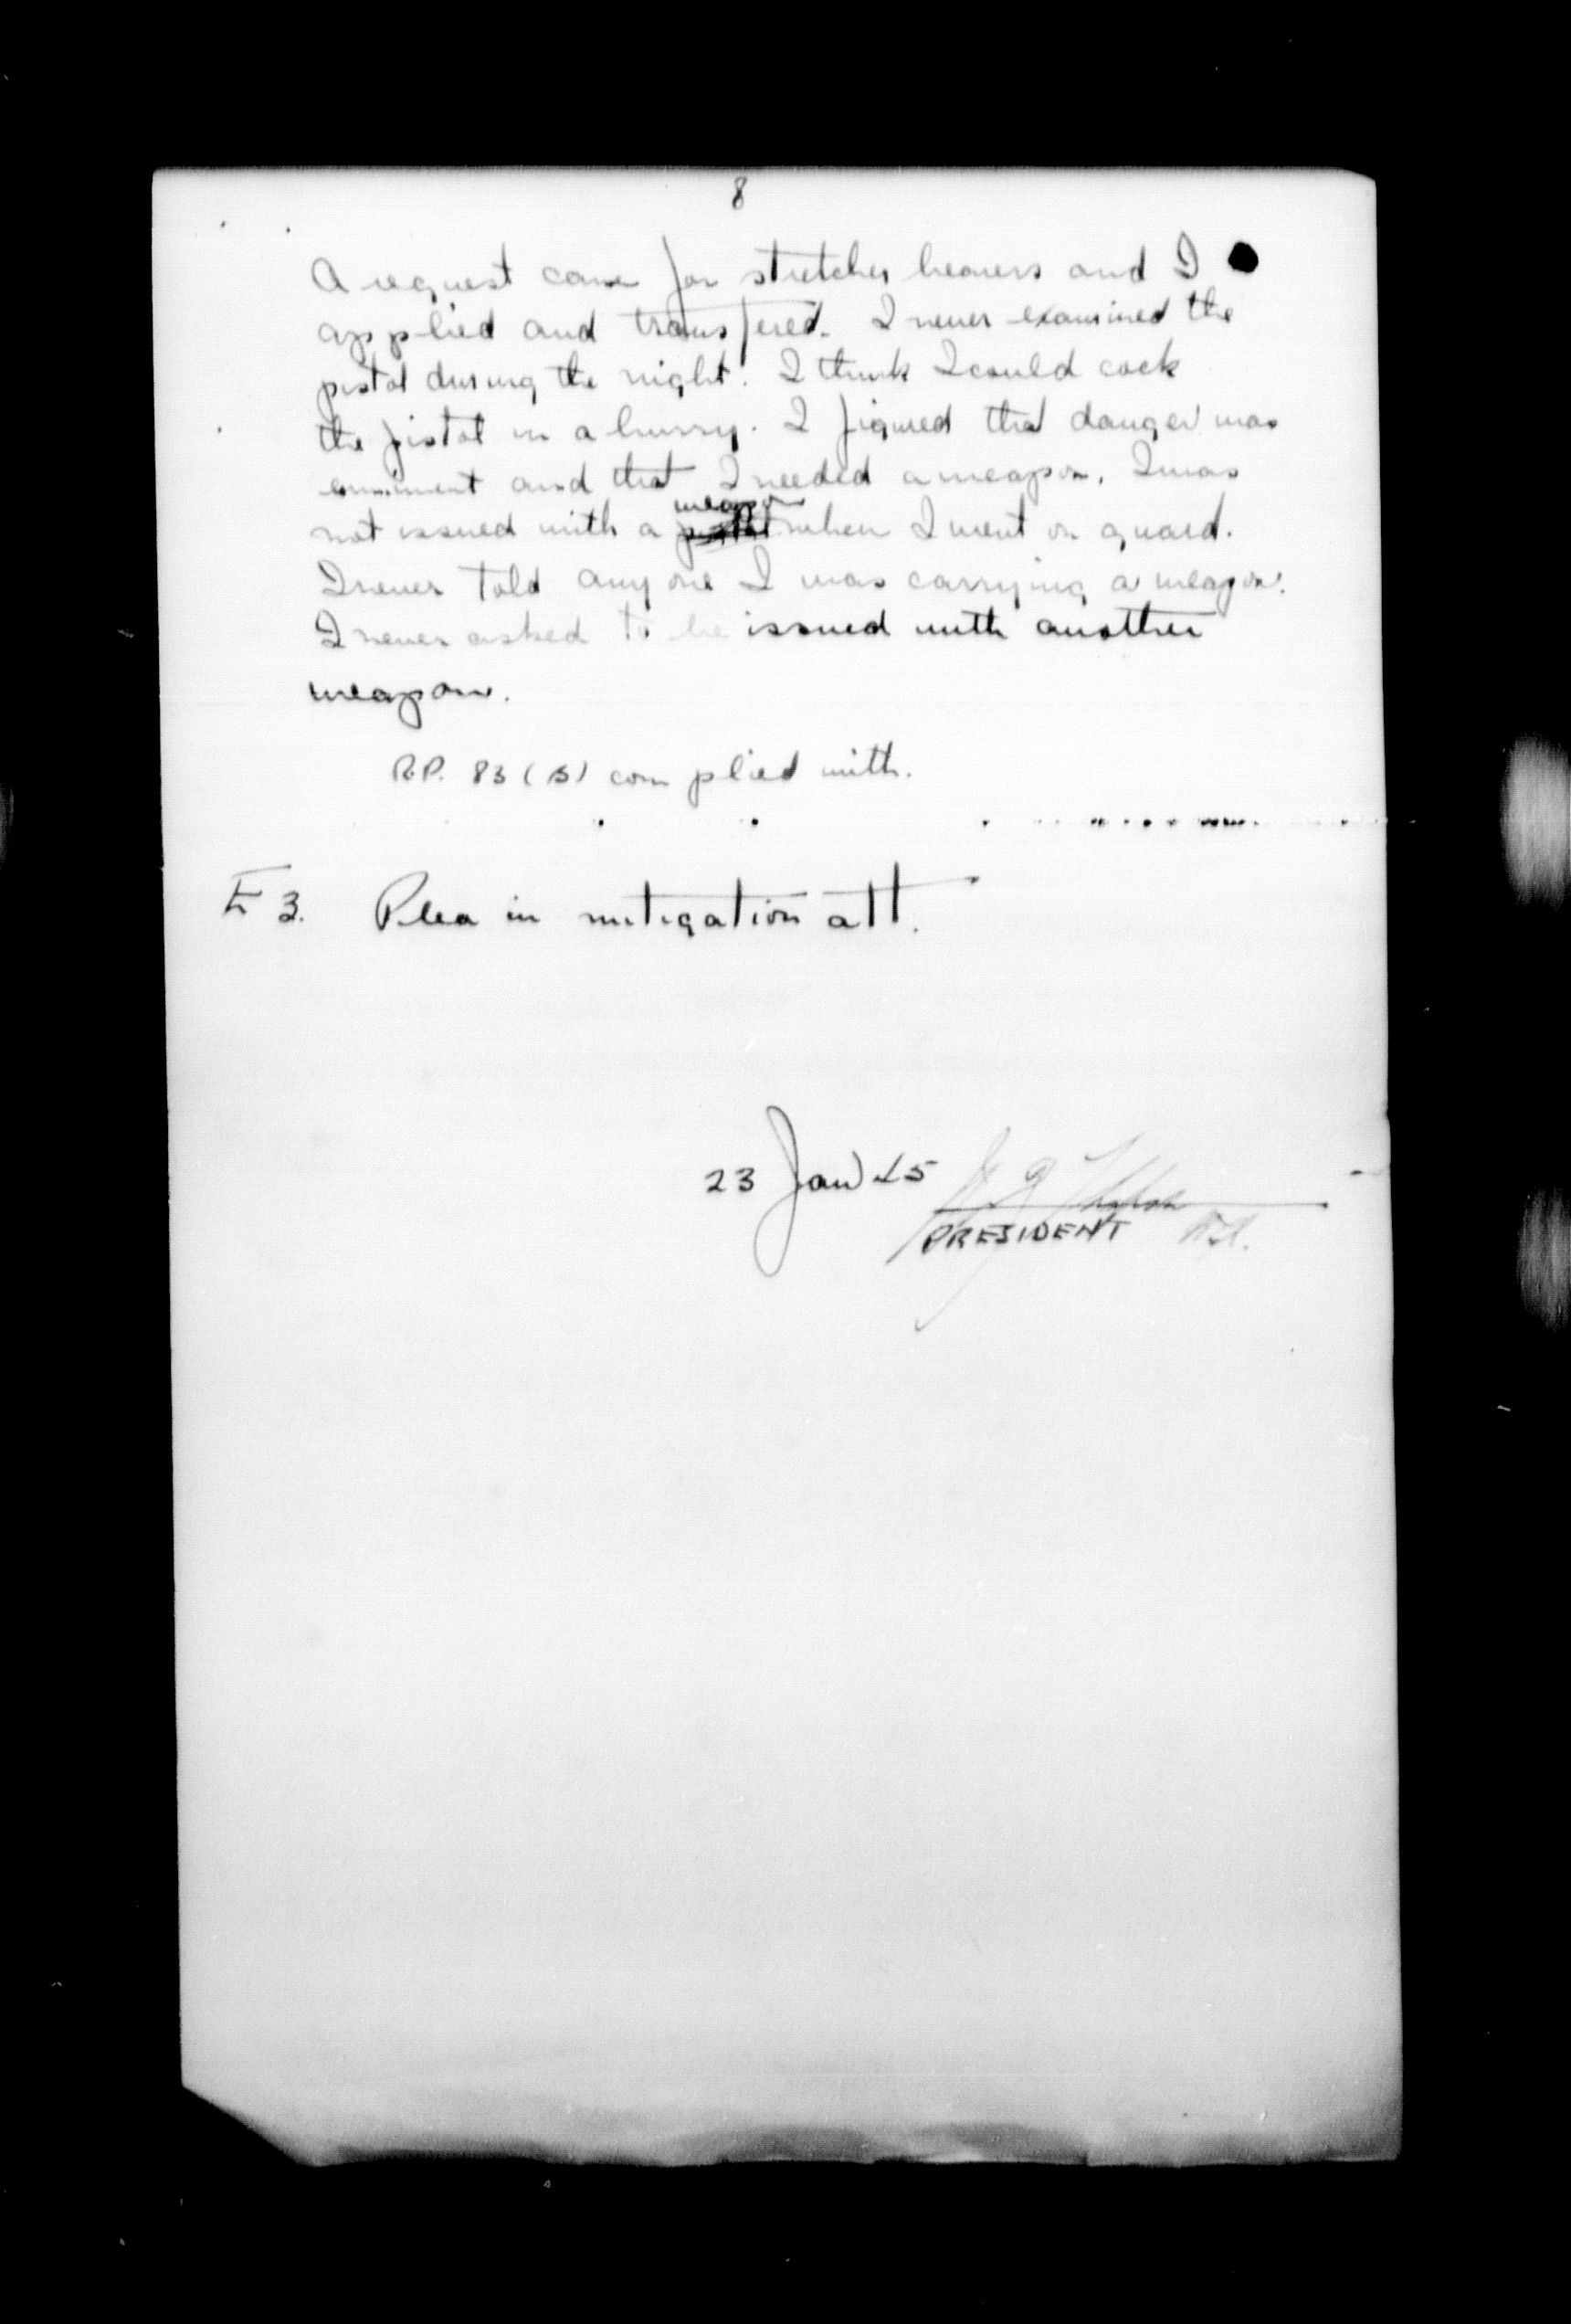 8
A request came for stretcher bearers and I
applied and transfered. I never examined the
pistol during the night. I think I could cock
the pistol in a hurry. I figured that danger was
enminent and that I needed a weapon. I was
weapon
not issued with a pistol when I went on guard.
I never told any one I was carrying a weapon.
I never asked to be issued with another
weapon.
R.P. 83 (B) complied with.
E 3. Plea in mitigation att.
23 Jan 45
PRESIDENT